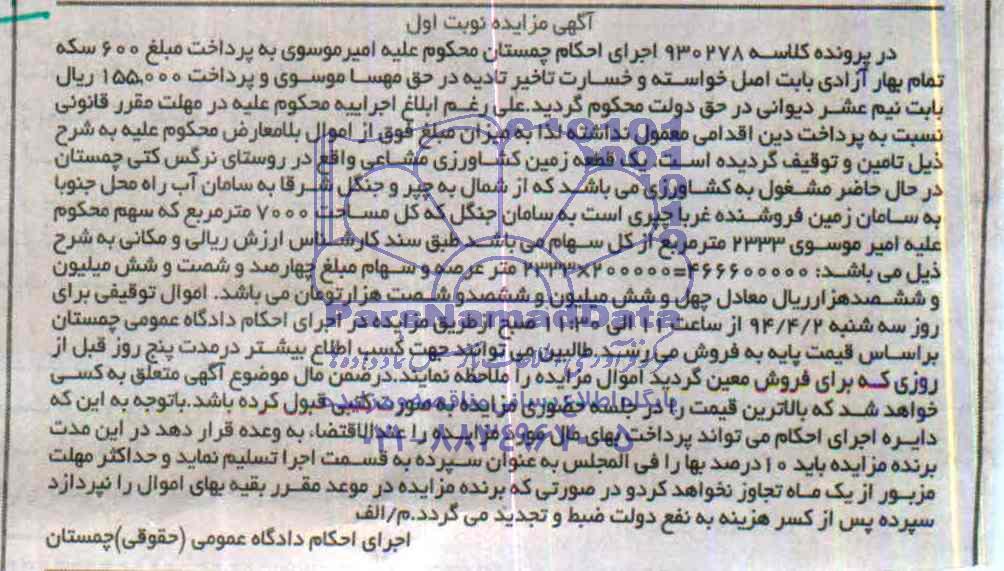 آگهی مزایده نوبت اول
در پرونده کلاسه ۹۳۰۲۷۸ اجرای احکام چمستان محکوم علیه امیرموسوی به پرداخت مبلغ ۶۰۰ سکه
تمام بهار آزادی بابت اصل خواسته و خسارت تاخیر تادیه در حق مهسا موسوی و پرداخت ۱۵۵,۰۰۰ ریال
بابت نیم عشر دیوانی در حق دولت محکوم گردید.علی رغم ابلاغ اجراییه محکوم علیه در مهلت مقرر قانونی
نسبت به پرداخت دین اقدامی معمول نداشته لذا به میزان مبلغ فوق از اموال بلامعارض محکوم علیه به شرح
ذیل تامین و توقیف گردیده است یک قطعه زمین کشاورزی مشاعی واقع در روستای نرگس کتی چمستان
در حال حاضر مشغول به کشاورزی می باشد که از شمال به چپر و جنگل شرقا به سامان آب راه محل جنوبا
به سامان زمین فروشنده غربا چپری است به سامان جنگل که کل مساحت ۷۰۰۰ مترمربع که سهم محکوم
علیه امیر موسوی ۲۳۳۳ مترمربع از کل سهام می باشد طبق سند کارشناس ارزش ریالی و مکانی به شرح
ذیل می باشد: ۲۳۳۳×۲۰۰۰۰۰=۴۶۶۶۰۰۰۰۰ متر عرصه و سهام مبلغ چهارصد و شصت و شش میلیون
و ششصدهزارریال معادل چهل و شش میلیون و ششصدو شصت هزارتومان می باشد. اموال توقیفی برای
روز سه شنبه ۹۴/۴/۲ از ساعت الی ۱۱:۳۰ صبح ازطریق مزایده در اجرای احکام دادگاه عمومی چمستان
براساس قیمت پایه به فروش می رسد طالبین می توانند جهت کسب اطلاع بیشتر درمدت پنج روز قبل از
روزی که برای فروش معین گردید اموال مزایده را ملاحظه نمایند.درضمن مال موضوع آگهی متعلق به کسی
خواهد شد که بالاترین قیمت را در جلسه حضوری مزایده به صورت کتبی قبول کرده باشد.باتوجه به این که
دایره اجرای احکام می تواند پرداخت بهای مال مورد مزایده را عندالاقتضا، به وعده قرار دهد در این مدت
برنده مزایده باید ۱۰درصد بها را فی المجلس به عنوان سپرده به قسمت اجرا تسلیم نماید و حداکثر مهلت
مزبور از یک ماه تجاوز نخواهد کردو در صورتی که برنده مزایده در موعد مقرر بقیه بهای اموال را نپردازد
سپرده پس از کسر هزینه به نفع دولت ضبط و تجدید می گردد.م/الف
اجرای احکام دادگاه عمومی (حقوقی)چمستان
ParsNamadData